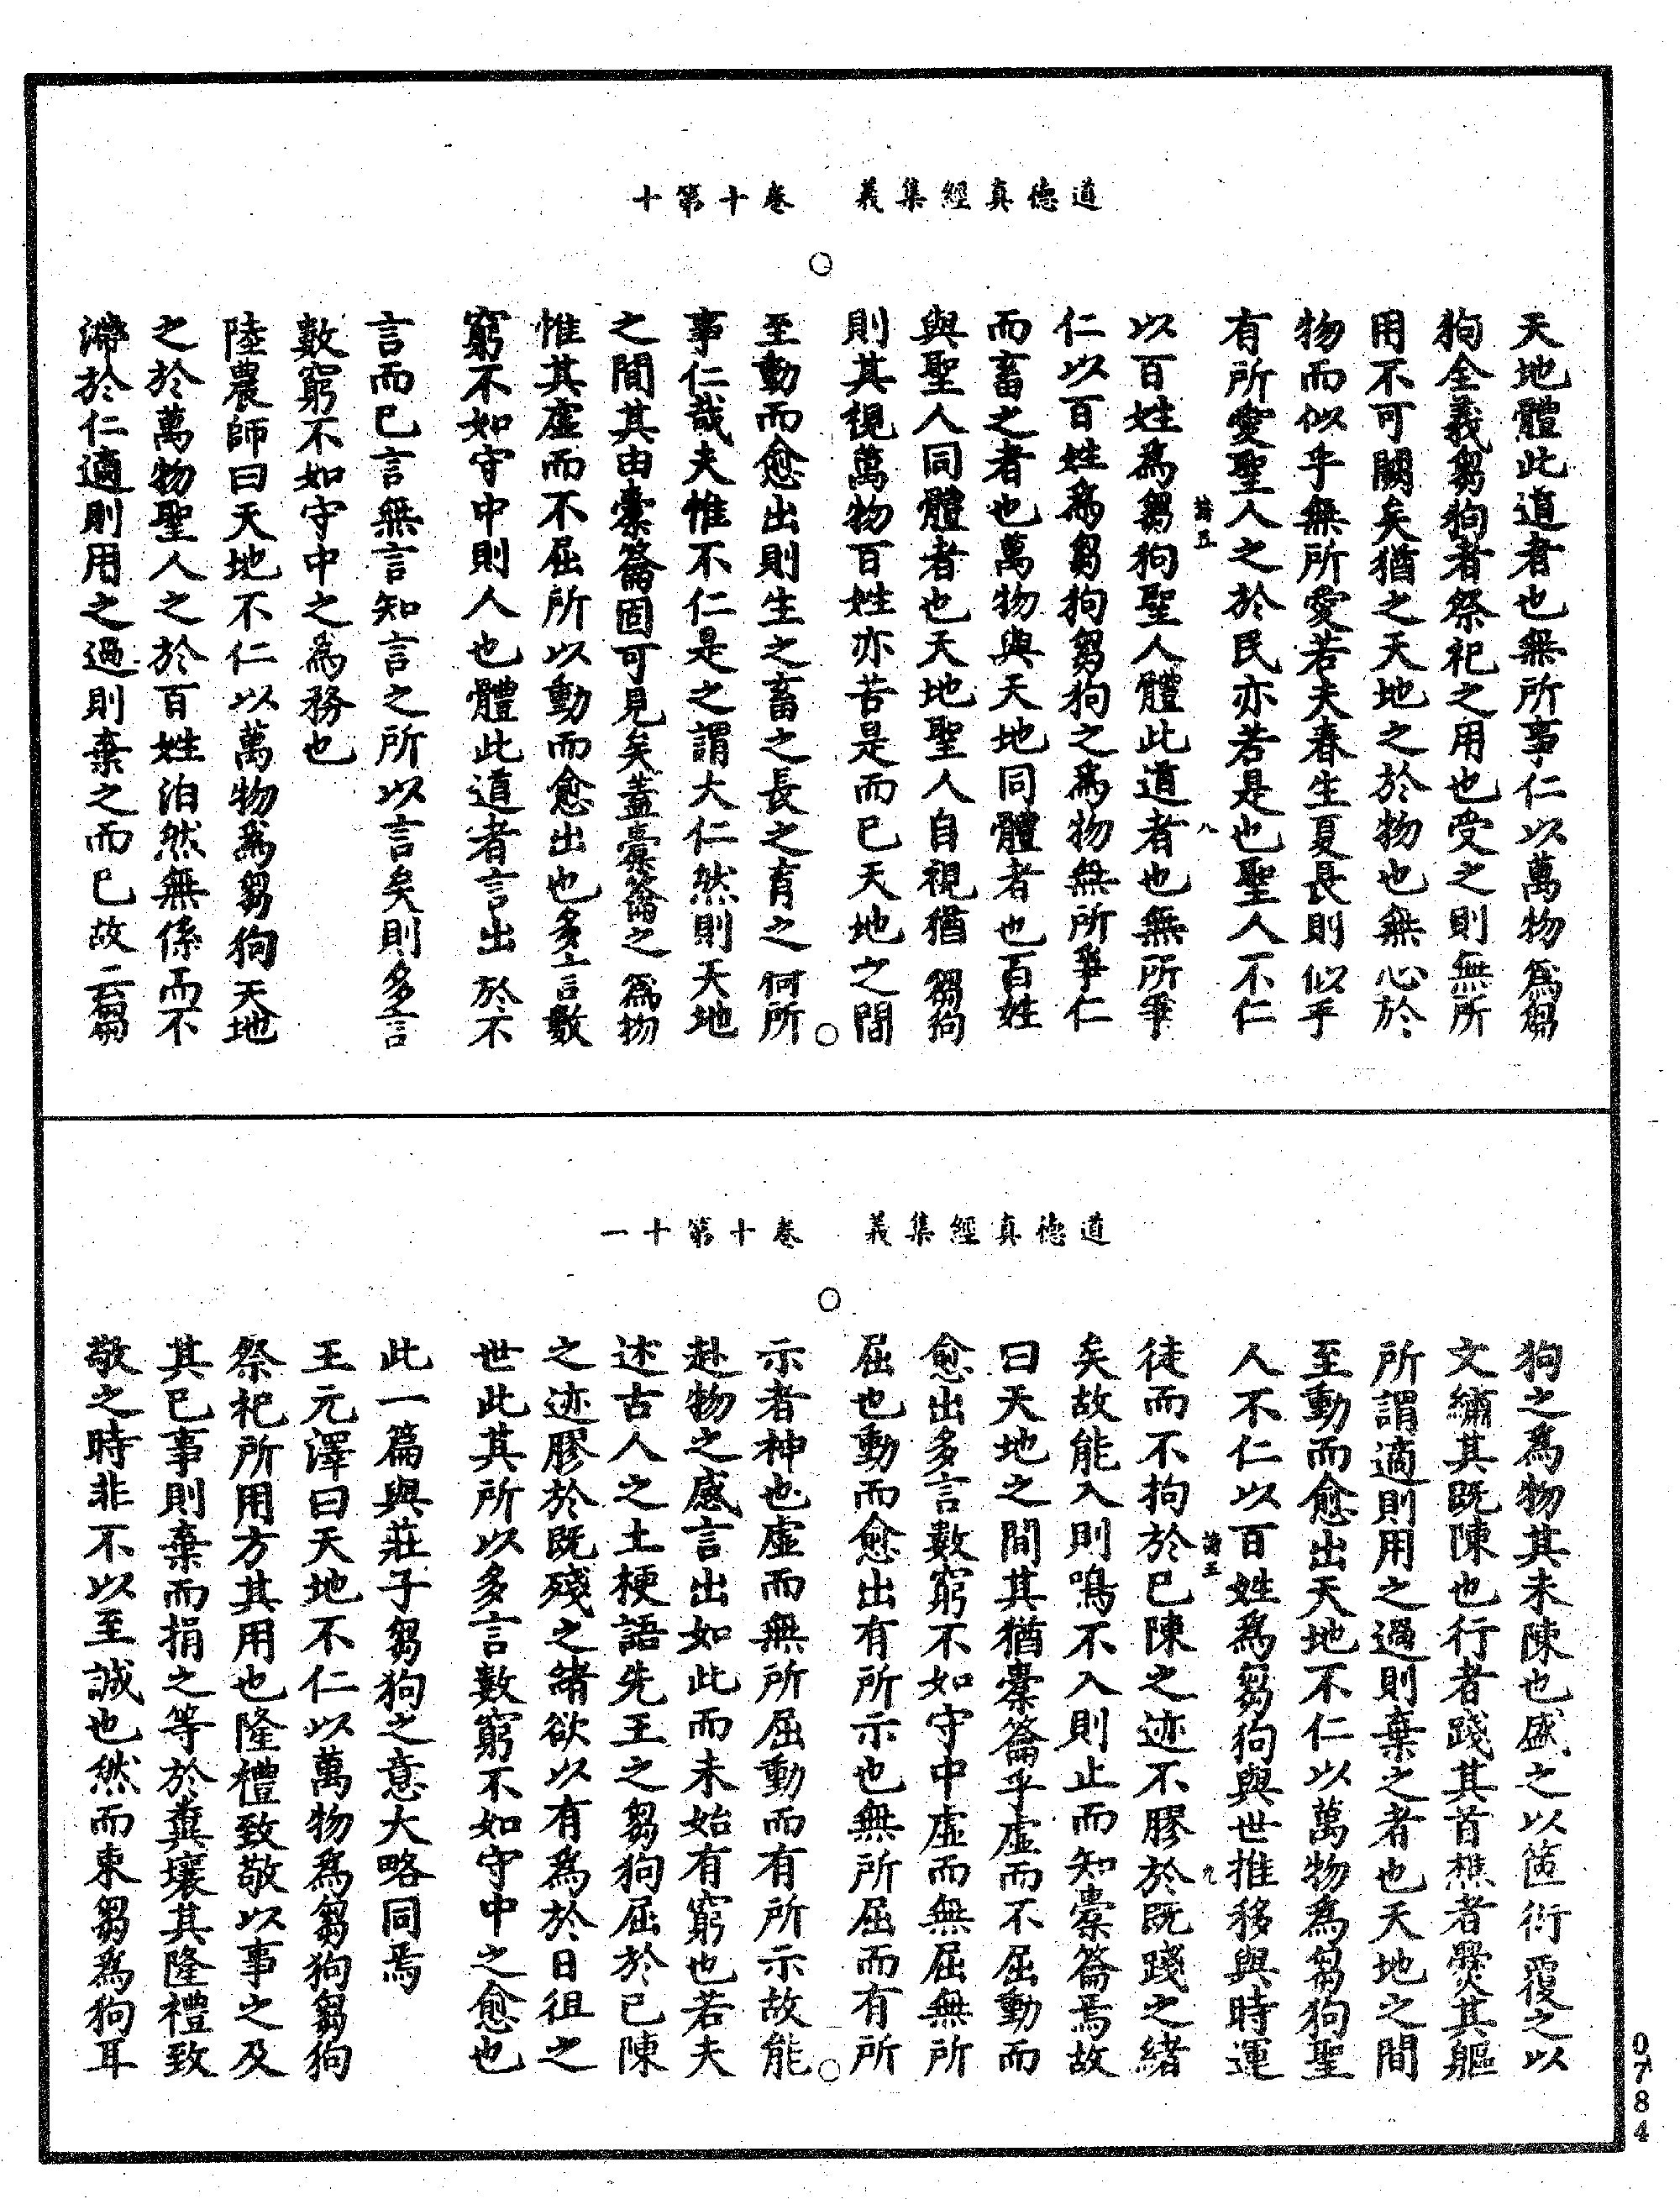 道德真經集義　卷十第十
天地體此道者也無所事仁以萬物爲芻
狗全義芻狗者祭祀之用也受之則無所
用不可闕矣猶之天地之於物也無心於
物而似乎無所愛若夫春生夏長則似乎
有所愛聖人之於民亦若是也聖人不仁
以百姓爲芻狗聖人體此道者也無所事
仁以百姓爲芻狗芻狗之爲物無所事仁
而畜之者也萬物與天地同體者也百姓
與聖人同體者也天地聖人自視猶芻狗
則其視萬物百姓亦若是而已天地之間
至動而愈出則生之畜之長之育之何所
事仁哉夫惟不仁是之謂大仁然則天地
之間其由橐籥固可見矣蓋橐籥之爲物
惟其虛而不屈所以動而愈出也多言數
窮不如守中則人也體此道者言出於不
言而已言無言知言之所以言矣則多言
數窮不如守中之爲務也
陸農師曰天地不仁以萬物爲芻狗天地
之於萬物聖人之於百姓泊然無係而不
滯於仁適則用之過則棄之而已故云芻
道德真經集義　卷十第十一
狗之爲物其未陳也盛之以篋衍覆之以
文繡其既陳也行者踐其首樵者爨其軀
所謂適則用之過則棄之者也天地之間
至動而愈出天地不仁以萬物爲芻狗聖
人不仁以百姓爲芻狗與世推移與時運
徒而不拘於已陳之迹不膠於既踐之緒
矣故能入則鳴不入則止而知橐籥焉故
曰天地之間其猶橐籥乎虛而不屈動而
愈出多言數窮不如守中虛而無屈無所
屈也動而愈出有所示也無所屈而有所
示者神也虛而無所屈動而有所示故能
赴物之感言出如此而未始有窮也若夫
述古人之土梗語先王之芻狗屈於已陳
之迹膠於既殘之緒欲以有爲於日徂之
世此其所以多言數窮不如守中之愈也
此一篇與莊子芻狗之意大略同焉
王元澤曰天地不仁以萬物爲芻狗芻狗
祭祀所用方其用也隆禮致敬以事之及
其已事則棄而捐之等於糞壤其隆禮致
敬之時非不以至誠也然而束芻爲狗耳
0784